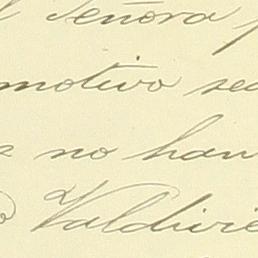 Señora
motivo
no han
Valdivie